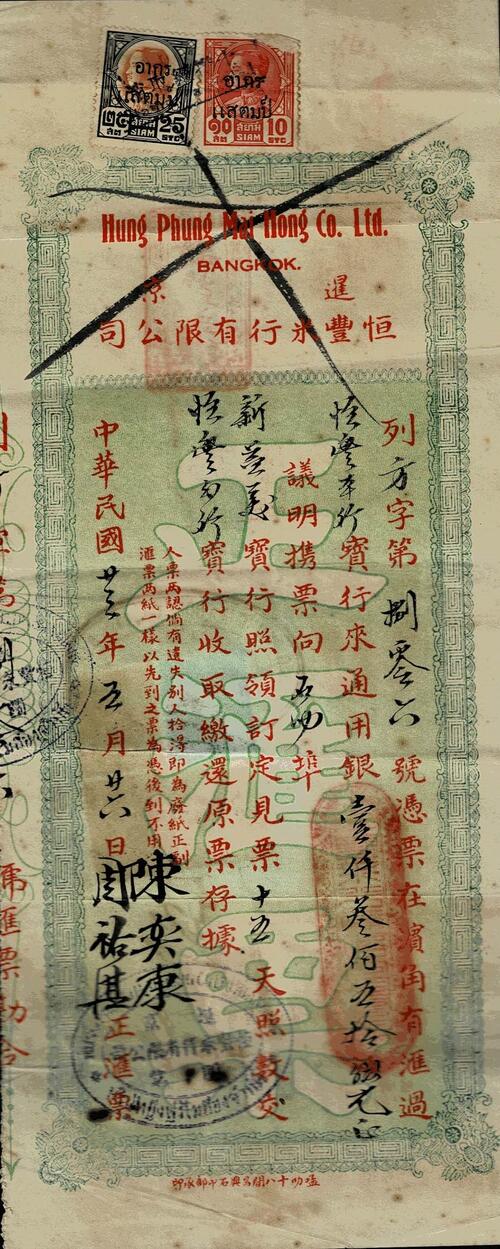 อากร
แสตมป์
๒๕ สยาม 25
สต. SIAM STG
อากร
แสตมป์
๑๐ สยาม 10
สต. SIAM STG
Hung Phung Mai Hong Co. Ltd.
BANGKOK.
暹京
恒豐米行有限公司
列方字第捌零六號憑票在濱角有滙過
恒豐本行寶行來通用銀壹仟叁佰五拾元正
議明攜票向石叻埠
新美寶行照領訂定見票十五天照數交
恒豐行寶行收取繳還原票存據
人票兩認倘有遺失別人拾得即為廢紙正副
滙票兩紙一樣以先到之票為憑後到不用
中華民國廿三年五月廿六日正滙票
陳奕康
周祐其